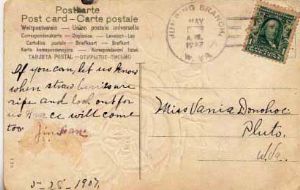 Postkarte
Post card – Carte postale
Weltpostverein – Union postale universelle
Correspondenzkarte – Dopisnice – Levelező-Lap
Cartolina postale – Briefkaart – Brefkort
Karta korespondencyjna – Korespondenční lístek
TARJETA POSTAL – ОТКРЫТОЕ ПИСЬМО
BRANCH,
MAY
A.M.
1907
W. VA.
If you can let us know
when straw berries are
ripe and look out for
us Grace will come
too
Miss Vania Donohoe
Pluto,
W.Va.
5-28-1907,